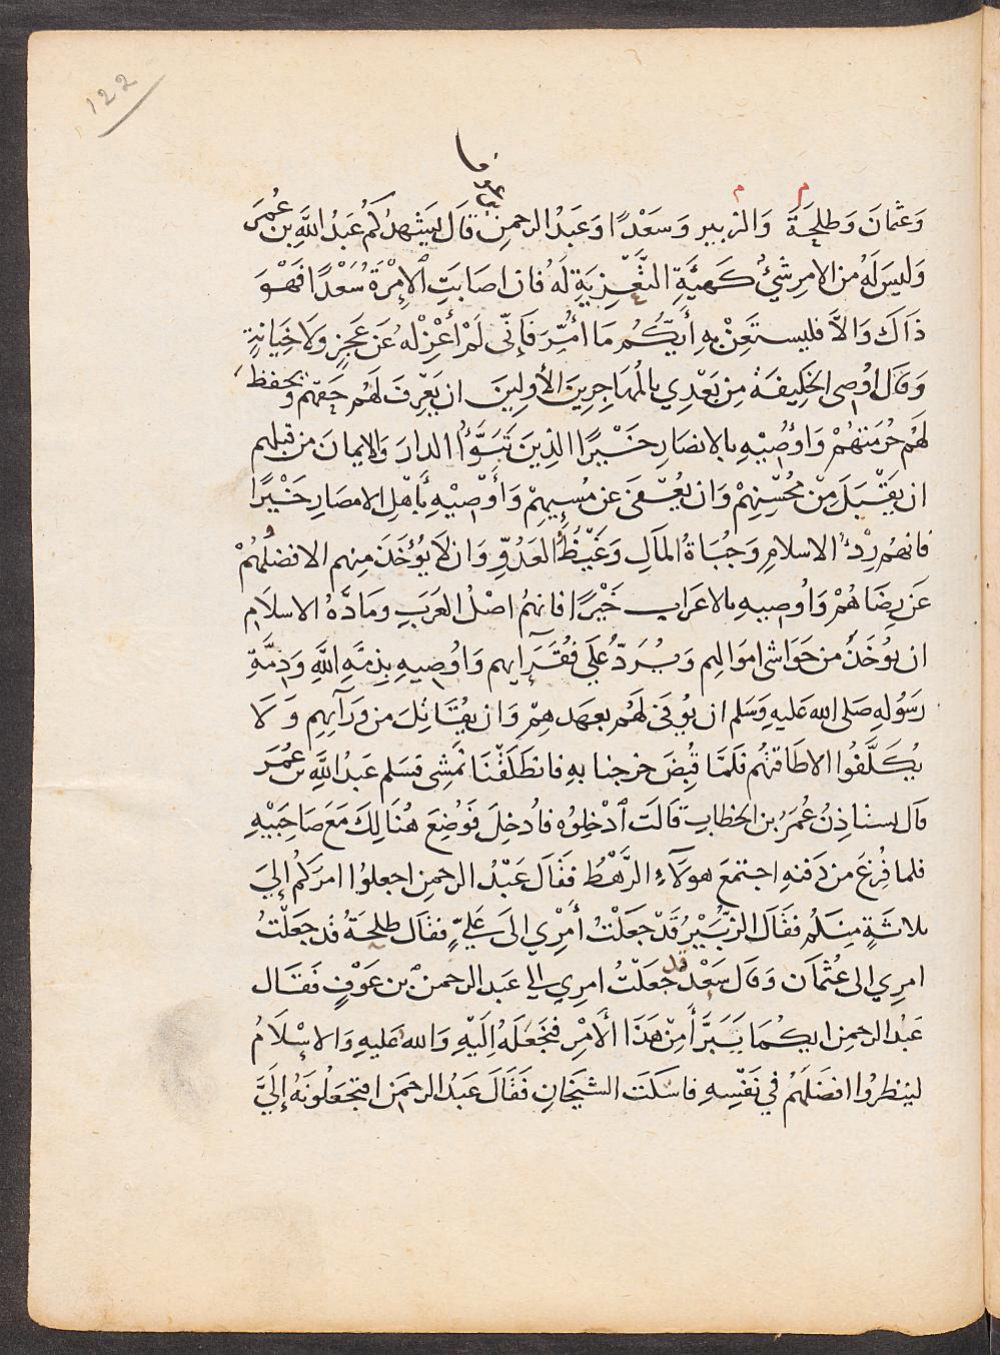 122
وَعثمانَ وَطلحَةَ وَالزبير وَسعَدْا وَعَبدُ الرحمنِ قال يَشهدُكم عَبدُ اللَّهِ بن عُمَرَ
وَليسَ لَهُ من الامرِ شئٌ كَهَيئَةِ التَّعْزِيَةِ لَهُ فان اصابَتِ الإمْرَةُ سَعْدًا فَهْوَ
ذَاكَ وَالاَّ فليستَعِنْ بهِ أَيّكُم مَا اُمِّرَ فَإنّى لَمْ أعْزِلْهُ عَن عَجزٍ وَلا خِيَانةٍ
وَقالَ اُوصى الخليفَةَ مِن بَعْدِي بالمهاجِرِينَ الأولينَ ان يَعْرِفَ لَهُم حَقهم ويحفظ
لَهُم حُرمَتهُمْ وَاُوصِيْهِ بالانصارِ خَيْرًا الذِينَ تَبَوَّءُا الدارَ وَالايمانَ من قبلهم
ان يَقْبَلَ مِنْ مُحْسِنِهِمْ وَان يُعْفى عن مُسِيِهِمْ وَأُوْصِيْهِ بَأهْلِ الامصارِ خَيْرًا
فانهُم رِدْءُ الاسلامِ وَجُبَاةُ المَالِ وَغَيْظُ العَدُوِّ وَان لا يُؤخَذَ مِنهم الا فضلُهُمْ
عَن رِضَاهُمْ وَاُوصيهِ بالاعرابِ خَيْرًا فانهُم اصْلُ العَرَبِ ومَادَّةُ الاسلام
ان يؤخَذُ من حَوَاشى اموَالِهم وَيُرَدُّ عَلى فُقَرَآيهم وَاُوصِيهِ بذمّةِ اللَّهِ وَذِمَّةِ
رَسُولهِ صَلى الله عَليهِ وَسَلم ان يُوفى لهُم بعهدهِمْ وَان يقَاتلَ من وَرَآيهم وَلا
يُكَلَّفُوا الا طاقتهُم فلَمّا قُبِضَ خرجنا بهِ فانطَلَقْنَا نمشِى فسَلم عَبدُ اللَّهِ بن عُمَرَ
قال يستاذِنُ عُمَرُ بن الخطابِ قالت أدْخِلوُه فاُدخِلَ فَوُضِعَ هُنَالِكَ مَعَ صَاحِبَيْهِ
فلما فُرِغَ من دَفنهِ اجتمَعَ هولآءِ الرَّهْطُ فقالَ عَبْدُ الرحمنِ اجعلوُا امرَكُم إلىَ
ثلاثَةٍ مِنكم فقَالَ الزّبَيْرُ قَدْ جَعَلْتُ أَمْرِي الىَ عَلِيٍّ فقال طلحَةُ قد جَعَلْتُ
امرِي الى عُثمَانَ وَقال سَعْدٌ قد جَعَلْتُ امرِي الى عَبد الرحمن بن عَوْفٍ فَقَال
عَبدُ الرحمن ايكُمَا يَتَبَرَّأ مِنْ هَذَا الأمْرِ فنَجَعَلَهُ اِلَيْهِ وَالله عَليهِ وَالاسْلامُ
لينظرُوا افضلَهُم في نَفْسِهِ فاسكت الشيخانِ فقَالَ عَبدُ الرحمَن افتجعَلُونَهُ إلىَّ